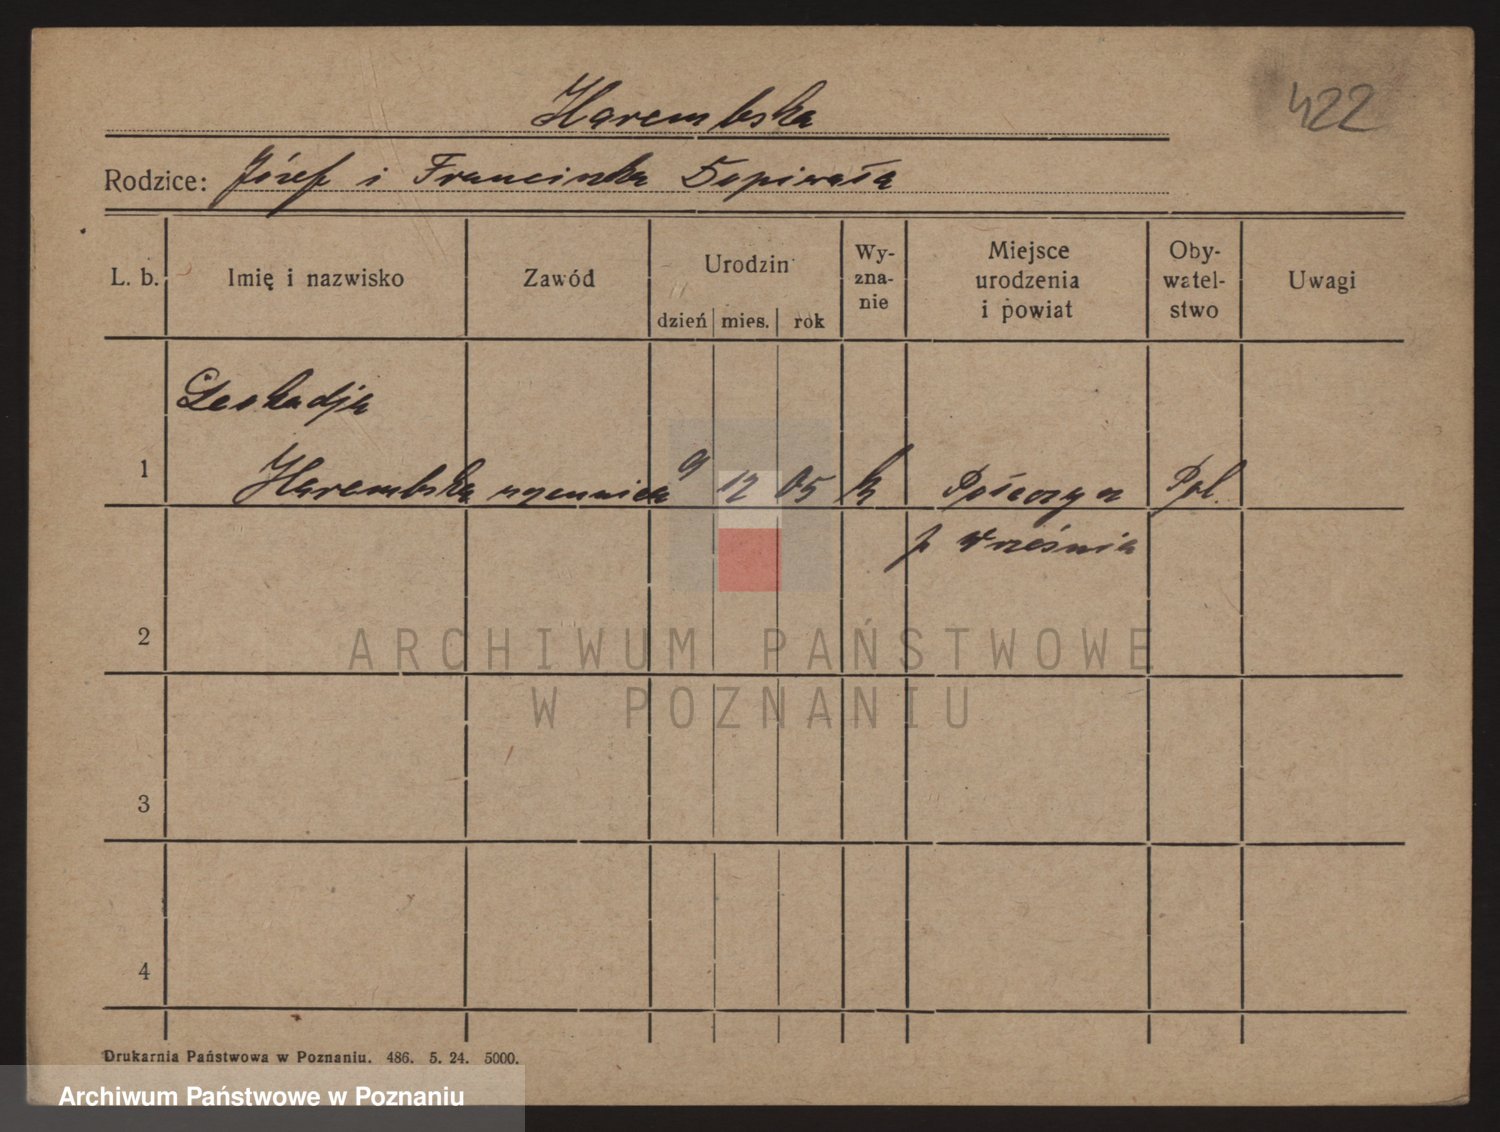 422
Harembska
Rodzice: Józef i Franciszka Sopiwała
L. b.
Imię i nazwisko
Zawód
Urodzin
dzień mies. rok
Wy-
zna-
nie
Miejsce
urodzenia
i powiat
Oby-
watel-
stwo
Uwagi
Leokadja
1 Harembska uczennica 9 12 05 k Ppl.
p Września
2
3
4
Drukarnia Państwowa w Poznaniu. 486. 5. 24. 5000.
ARCHIWUM PAŃSTWOWE
W POZNANIU
Archiwum Państwowe w Poznaniu